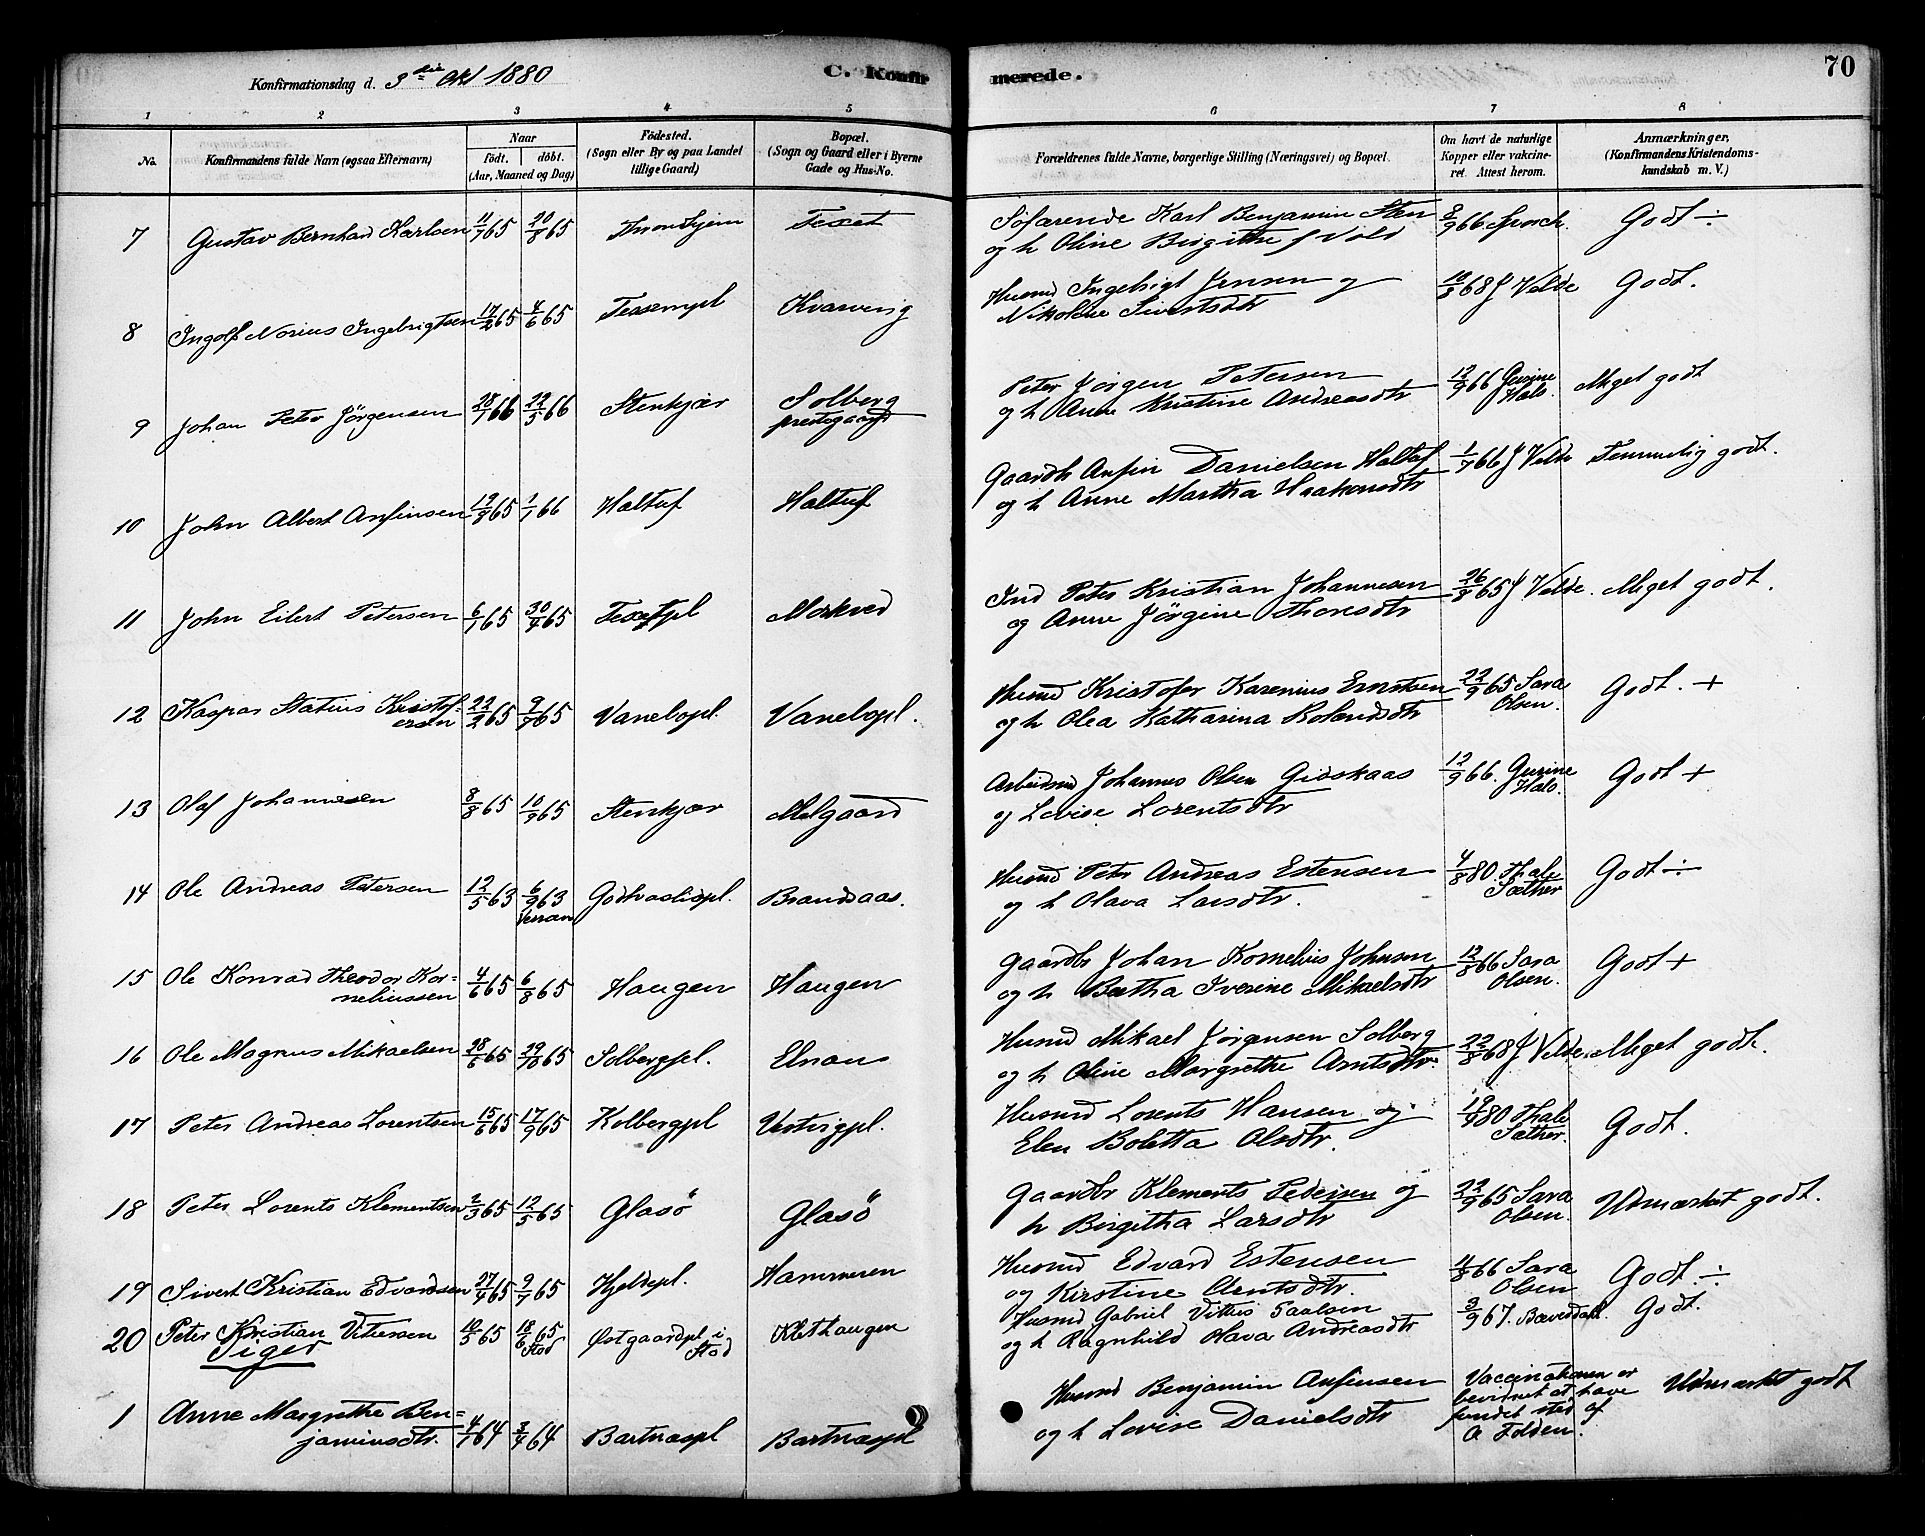 70
Konfirmationsdag d. 3die Okt 1880
C. Konfirmerede.
1 2 3 4 5 6 7 8
No.
Konfirmandens fulde Navn (ogsaa Efternavn)
Naar
födt. döbt.
(Aar, Maaned og Dag)
Födested.
(Sogn eller By og paa Landet
tillige Gaard)
Bopæl.
(Sogn og Gaard eller i Byerne
Gade og Hus-No.
Forældrenes fulde Navne, borgerlige Stilling (Næringsvei) og Bopæl.
Om havt de naturlige
Kopper eller vakcine-
ret. Attest herom.
Anmærkninger,
(Konfirmandens Kristendoms-
kundskab m. V.)
7 Gustav Bernhard Karlsen 11/7 65 20/8 65 Trondhjem Texet Söfarende Karl Benjamin Sten 8/9 66 Godt ÷
og h Oline Birgitte f Vold
8 Ingolf Norius Ingebrigtsen 17/2 65 4/6 65 Tessempl Kvarving Husmd Ingebrigt Jensen og 10/8 68 J Velde Godt.
Nikoline Sivertsdtr
9 Johan Peter Jörgensen 28/1 66 22/5 66 Stenkjær Solberg
prestegaard
Peter Jörgen Petersen 12/9 66 Gurine
Hals. Meget godt
og h Anne Kristine Andreasdtr
10 John Albert Anfinsen 19/9 65 1/1 66 Haltuf Haltuf Gaardbr Anfin Danielsen Haltuf 1/7 66 J Velde Temmelig godt.
og h Anne Martha Haakensdtr
11 John Eilert Petersen 6/1 65 30/4 65 Texetpl Morkved Ind Peter Kristian Johannesen 26/8 65 J Velde. Meget godt.
og Anne Jörgine Thoresdtr
12 Kaspar Statius Kristof-
ersen 22/2 65 9/7 65 Vanebopl. Vanebopl. Husmd Kristofer Karenius Ernstsen 22/9 65 Sara
Olsen. Godt. +
og h Olea Katharina Rolandsdtr
13 Olaf Johannesen 8/8 65 10/9 65 Stenkjær Melgaard Arbeidsmd Johannes Olsen Gidskaas 12/9 66. Gurine
Hals. Godt +
og Lovise Lorentsdtr
14 Ole Andreas Petersen 12/5 63 6/9 63
Verran Godkvaslidpl. Brandsaas. Husmd Peter Andreas Estensen 4/8 80. Thale
Sæther Godt ÷
og h Olava Larsdtr.
15 Ole Konrad Theodor Kor-
neliussen 4/6 65 6/8 65 Haugen Haugen Gaardbr Johan Kornelius Johnsen 12/8 66 Sara
Olsen. Godt +
og h Bertha Iverine Mikaelsdtr
16 Ole Magnus Mikaelsen 28/6 65 29/10 65 Solbergpl. Elnan Husmd Mikael Jörgensen Solberg 22/8 68 J Velde. Meget godt.
og h Oline Margrethe Arntsdtr.
17 Peter Andreas Lorentsen 15/6 65 17/9 65 Kolbergpl Vestvigpl. Husmd Lorents Hansen og 19/9 80 Thale
Sæther. Godt.
Elen Boletta Olsdtr.
18 Peter Lorents Klementsen 2/3 65 12/5 65 Glasö Glasö Gaardbr Klements Pedersen og 22/9 65 Sara
Olsen. Udmærket godt.
h Birgitha Larsdtr
19 Sivert Kristian Edvardsen 27/4 65 9/7 65 Hjeldepl. Hammeren Husmd Edvard Estensen 4/8 66 Sara
Olsen Godt ÷
og Kirstine Arntsdtr.
20 Peter Kristian Vitussen 10/5 65 18/6 65
Stod Østgaardpl i
Stod Klethaugen Husmd Gabriel Vittus Paalsen 3/9 67. Godt.
og h Ragnhild Olava Andreasdtr
Piger
1 Anne Margrethe Ben-
jaminsdtr. 4/1 64 3/4 64 Bartnæspl Bartnæspl Husmd Benjamin Anfinsen Vaccinationen er
bevidnet at have
fundet sted af
A Folden. Udmærket godt
og h Lovise Danielsdtr